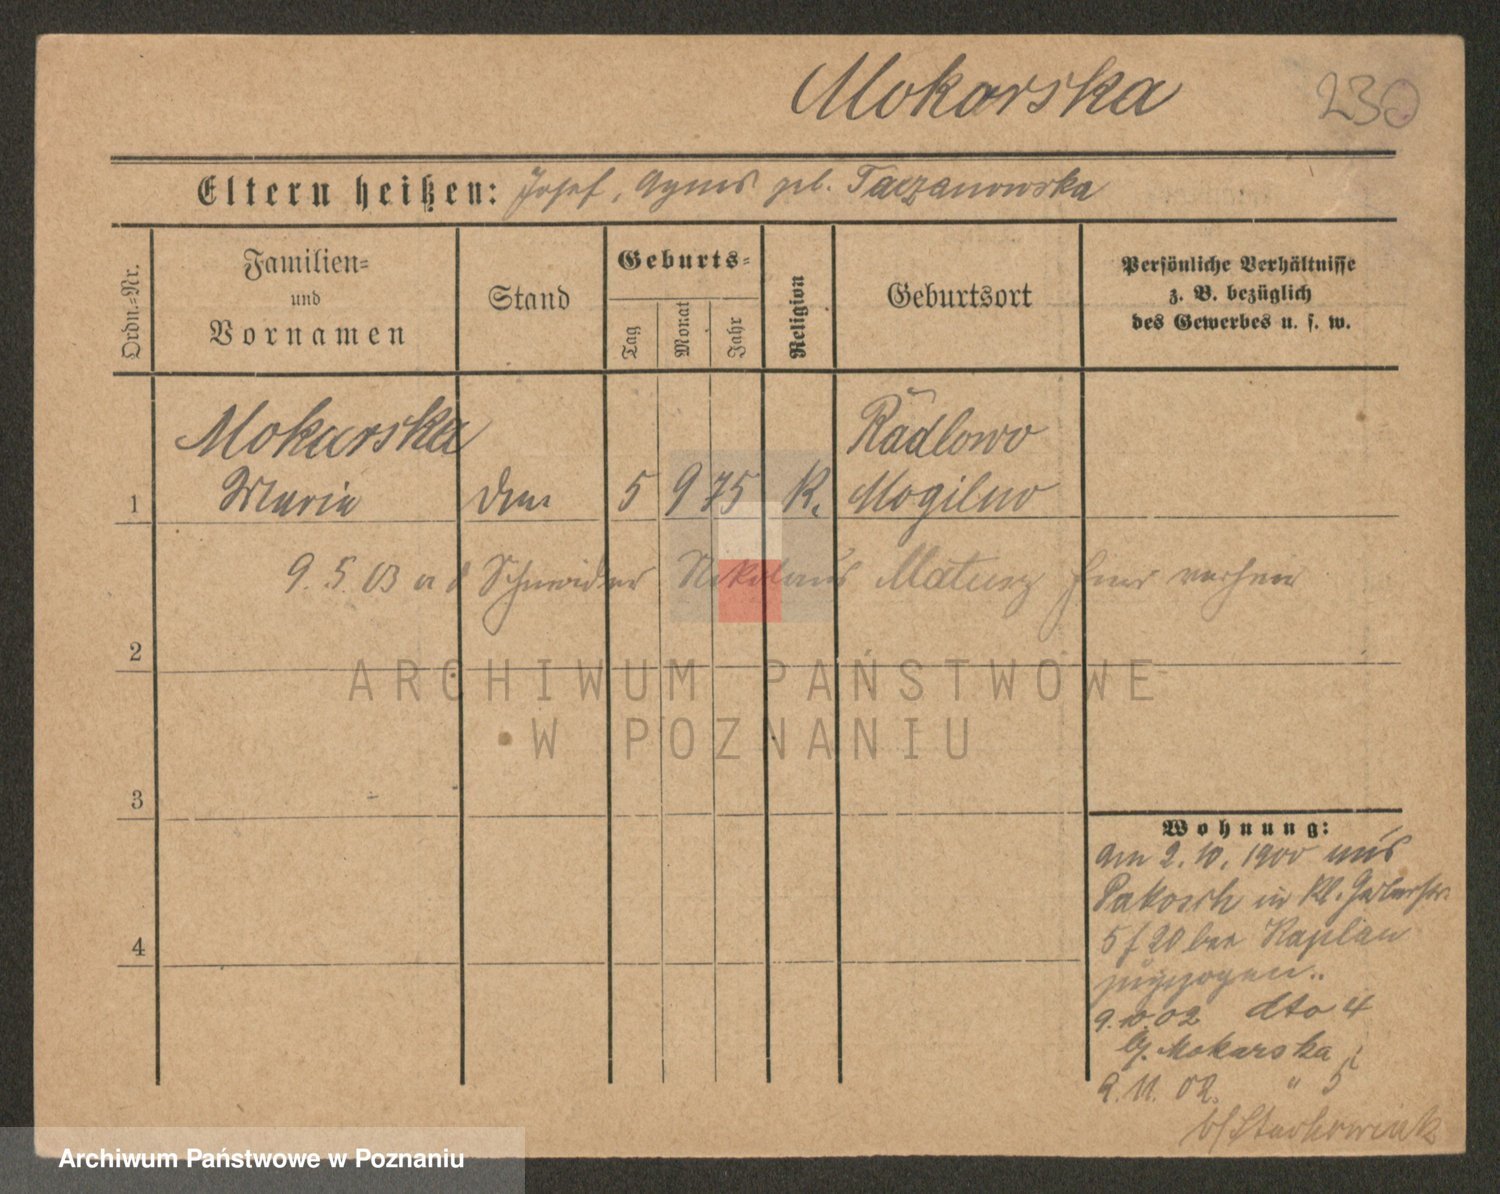 Mokarska 230
Eltern heißen: Josef, Agnes geb. Taczanowska
Ordn.=Nr.
Familien=
und
Vornamen
Stand
Geburts=
Tag
Monat
Jahr
Religion
Geburtsort
Persönliche Verhältnisse
z. B. bezüglich
des Gewerbes u. s. w.
Mokarska
Maria
5 9 75 K.
Rädlowo
Mogilno
1
9. 5. 03 a d Schneider Nikolaus Matusz hier verheir
2
ARCHIWUM PAŃSTWOWE
W POZNANIU
3
4
Wohnung:
am 2. 10. 1900 aus
Pakosch in Kl. Gerberstr.
5 f 20 bei Kaplan
zugezogen..
9. 10. 02 dto 4
b/. Mokarska
9. 11. 02. " 5
b/ Stachowiak
Archiwum Państwowe w Poznaniu